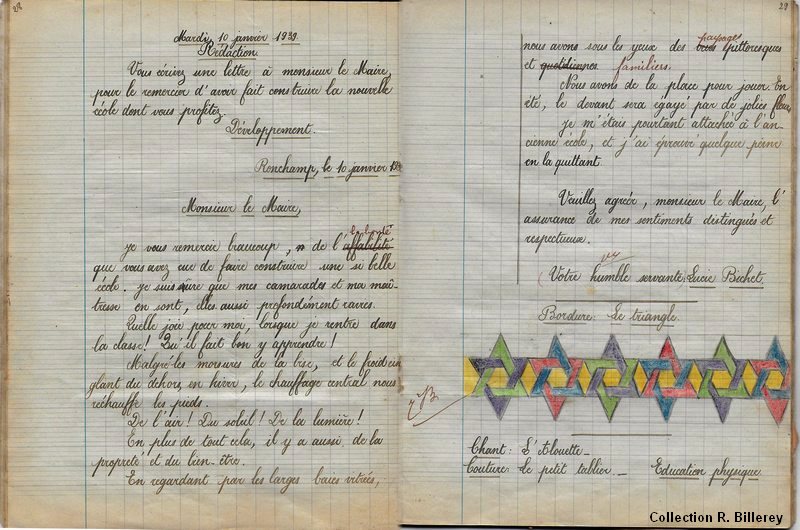 28
Mardi, 10 janvier 1939.
Rédaction.
Vous écrivez une lettre à monsieur le Maire,
pour le remercier d'avoir fait construire la nouvelle
école dont vous profitez.
Développement.
Ronchamp, le 10 janvier 193
Monsieur le Maire,
la bonté
je vous remercie beaucoup, de l'affabilité
que vous avez eue de faire construire une si belle
école. je suis sûre que mes camarades et ma maî-
tresse en sont, elles aussi profondément ravies.
Quelle joie pour moi, lorsque je rentre dans
la classe! Qu'il fait bon y apprendre!
Malgré les morsures de la bise, et le froid cin
glant du dehors, en hiver, le chauffage central nous
réchauffe les pieds.
De l'air! Du soleil! De la lumière!
En plus de tout cela, il y a aussi de la
propreté et du bien-être.
En regardant par les larges baies vitrées,
29
paysages
nous avons sous les yeux des pittoresques
et quotidiennes familiers.
Nous avons de la place pour jouer. En
été, le devant sera égayé par de jolies fleurs
je m'étais pourtant attachée à l'an-
cienne école, et j'ai éprouvé quelque peine
en la quittant.
Veuillez agréer, monsieur le Maire, l'
assurance de mes sentiments distingués et
respectueux.
(Votre humble servante: Lucie Bichet.
Bordure: Le triangle.
Chant: L'Alouette_
Couture: Le petit tablier._ Education physique.
Collection R. Billerey